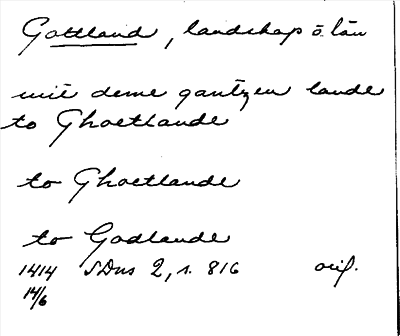 Gottland, landskap o. län
mit deme gantzen lande
to Ghoetlande
to Ghoetlande
to Godlande
1414 SDns 2, s. 816 orig.
14/6